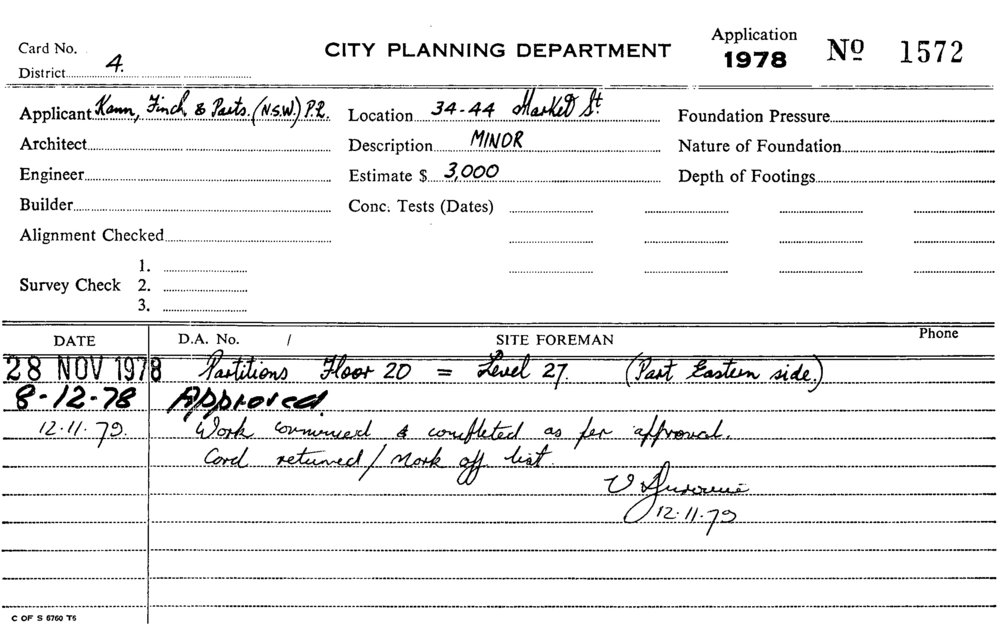 Card No.
CITY PLANNING DEPARTMENT
Application
1978 Nº 1572
District 4.
Applicant Kann, Finch & Parts. (N.S.W.) P.L. Location 34-44 Market St. Foundation Pressure
Architect Description MINOR Nature of Foundation
Engineer Estimate $ 3,000 Depth of Footings
Builder Conc. Tests (Dates)
Alignment Checked
1.
Survey Check 2.
3.
DATE D.A. No. / SITE FOREMAN Phone
28 NOV 1978 Partitions Floor 20 = Level 27. (Part Eastern side.)
8-12-78 Approved
12.11.79. Work commenced & completed as per approval.
Card returned / Mark off list.
12.11.79
C OF S 6760 T6